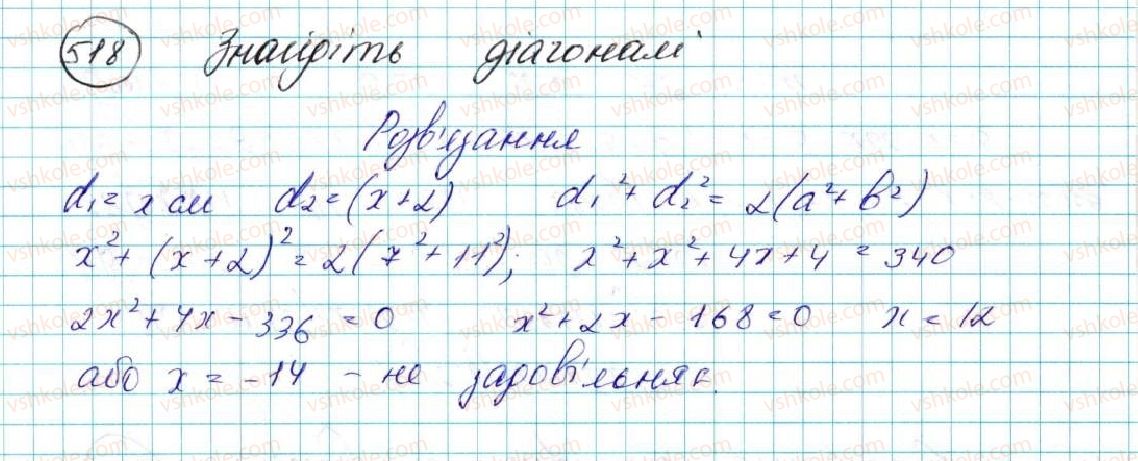 518 Знайдіть діагоналі
Розв'язання
d₁ = x см d₂ = (x+2) d₁² + d₂² = 2(a² + b²)
x² + (x+2)² = 2(7² + 11²); x² + x² + 4x + 4 = 340
2x² + 4x - 336 = 0 x² + 2x - 168 = 0 x = 12
або x = -14 - не задовільняє.